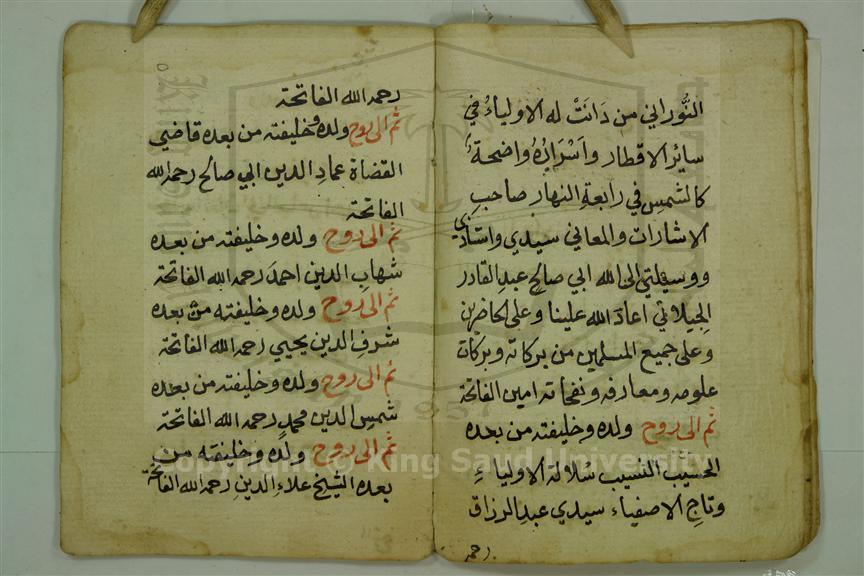 النُّوراني من دَانَتْ له الاولياءُ في
سايرالاقطار واَسْرَارُهُ واضحةُ
كالشمسِ في رابعةِ النهار صاحبِ
الاشارات والمعاني سيدي واستاذي
ووسيلتي الى الله ابي صالحٍ عبدِالقادر
الجيلاني اعاد الله علينا وعلى الحاضرين
وعلى جميع المسلمين من بركاته وبركات
علومه ومعارفه ونفحاته امين الفاتحة
ثم الى روح ولده وخليفته من بعده
الحسيب النسيب سُلالة الاولياءِ
وتاجِ الاصفياء سيدي عبدِالرزاق
رحمه
رحمه الله الفاتحة
ثم الى روح ولده وخليفته من بعده قاضي
القضاة عمادِ الدين ابي صالح رحمه الله
الفاتحة
ثم الى روح ولده وخليفته من بعده
شهابِ الدين احمدَ رحمه الله الفاتحة
ثم الى روح ولده وخليفته من بعده
شرفِ الدين يحيي رحمه الله الفاتحة
ثم الى روح ولده وخليفته من بعده
شمسِ الدين محمدٍ رحمه الله الفاتحة
ثم الى روح ولده وخليفته من
بعده الشيخ علاءِ الدينِ رحمه الله الفاتحة
Copyright © King Saud University
1957